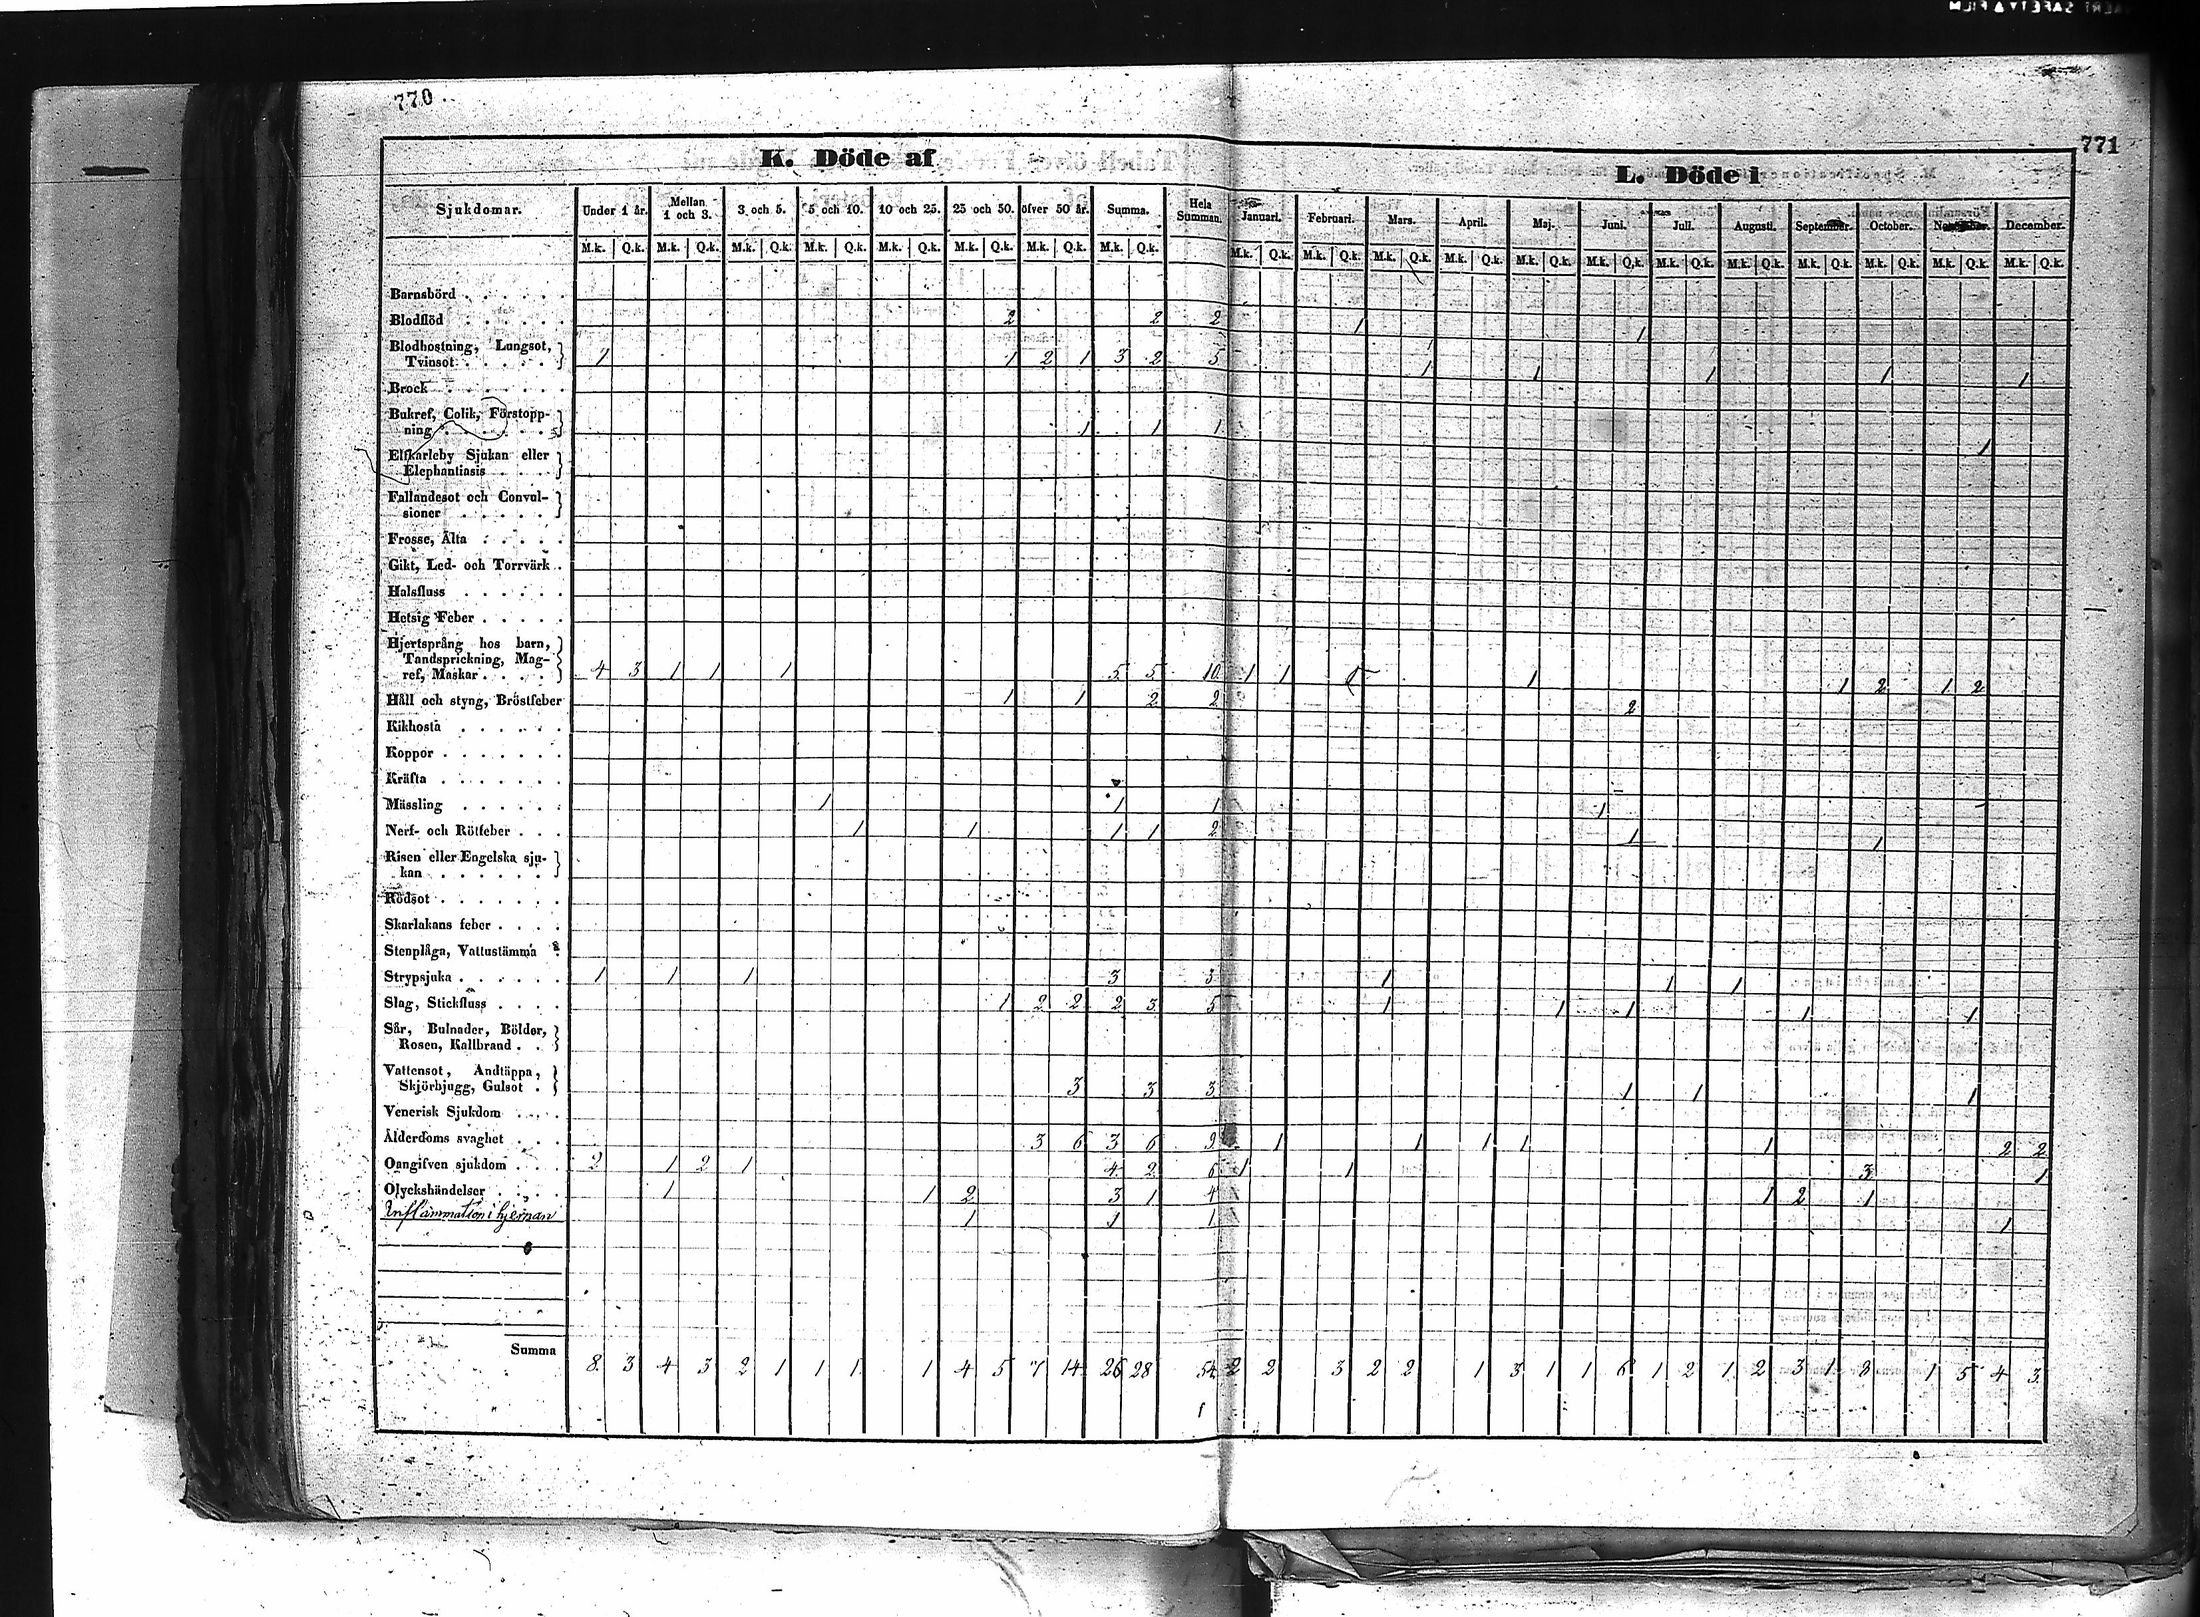 770
771
K. Döde af
L. Döde i
Sjukdomar. Under 1 år. Mellan 1 och 3. 3 och 5. 5 och 10. 10 och 25. 25 och 50. öfver 50 år. Summa. Hela Summan. Januari. Februari. Mars. April. Maj. Juni. Juli. Augusti. September. October. November. December.
M.k. Q.k. M.k. Q.k. M.k. Q.k. M.k. Q.k. M.k. Q.k. M.k. Q.k. M.k. Q.k. M.k. Q.k. M.k. Q.k. M.k. Q.k. M.k. Q.k. M.k. Q.k. M.k. Q.k. M.k. Q.k. M.k. Q.k. M.k. Q.k. M.k. Q.k. M.k. Q.k. M.k. Q.k. M.k. Q.k.
Barnsbörd
Blodflöd 2 2 2 1 1
Blodhostning, Lungsot,
Tvinsot 1 1 2 1 3 2 5 1 1 1 1 1
Brock
Bukref, Colik, Förstopp-
ning 1 1 1 1
Elfkarleby Sjukan eller
Elephantiasis
Fallandesot och Convul-
sioner
Frosse, Älta
Gikt, Led- och Torrvärk
Halsfluss
Hetsig Feber
Hjertsprång hos barn,
Tandsprickning, Mag-
ref, Maskar 4 3 1 1 1 5 5 10 1 1 1 1 1 2 1 2
Håll och styng, Bröstfeber 1 1 2 2 2
Kikhosta
Koppor
Kräfta
Mässling 1 1 1 1
Nerf- och Rötfeber 1 1 1 1 2 1 1
Risen eller Engelska sju-
kan
Rödsot
Skarlakans feber
Stenplåga, Vattustämma
Strypsjuka 1 1 1 3 3 1 1 1
Slag, Stickfluss 1 2 2 2 3 5 1 1 1 1 1
Sår, Bulnader, Bölder,
Rosen, Kallbrand
Vattensot, Andtäppa,
Skjörbjugg, Gulsot 3 3 3 1 1 1
Venerisk Sjukdom
Ålderdoms svaghet 3 6 3 6 9 1 1 1 1 1 2 2
Oangifven sjukdom 2 1 2 1 4 2 6 1 1 3 1
Olyckshändelser 1 1 2 3 1 4 1 2 1
Inflammation i hjernan 1 1 1 1
Summa 8 3 4 3 2 1 1 1 1 4 5 7 14 26 28 54 2 2 3 2 2 1 3 1 1 6 1 2 1 2 3 1 8 1 5 4 3